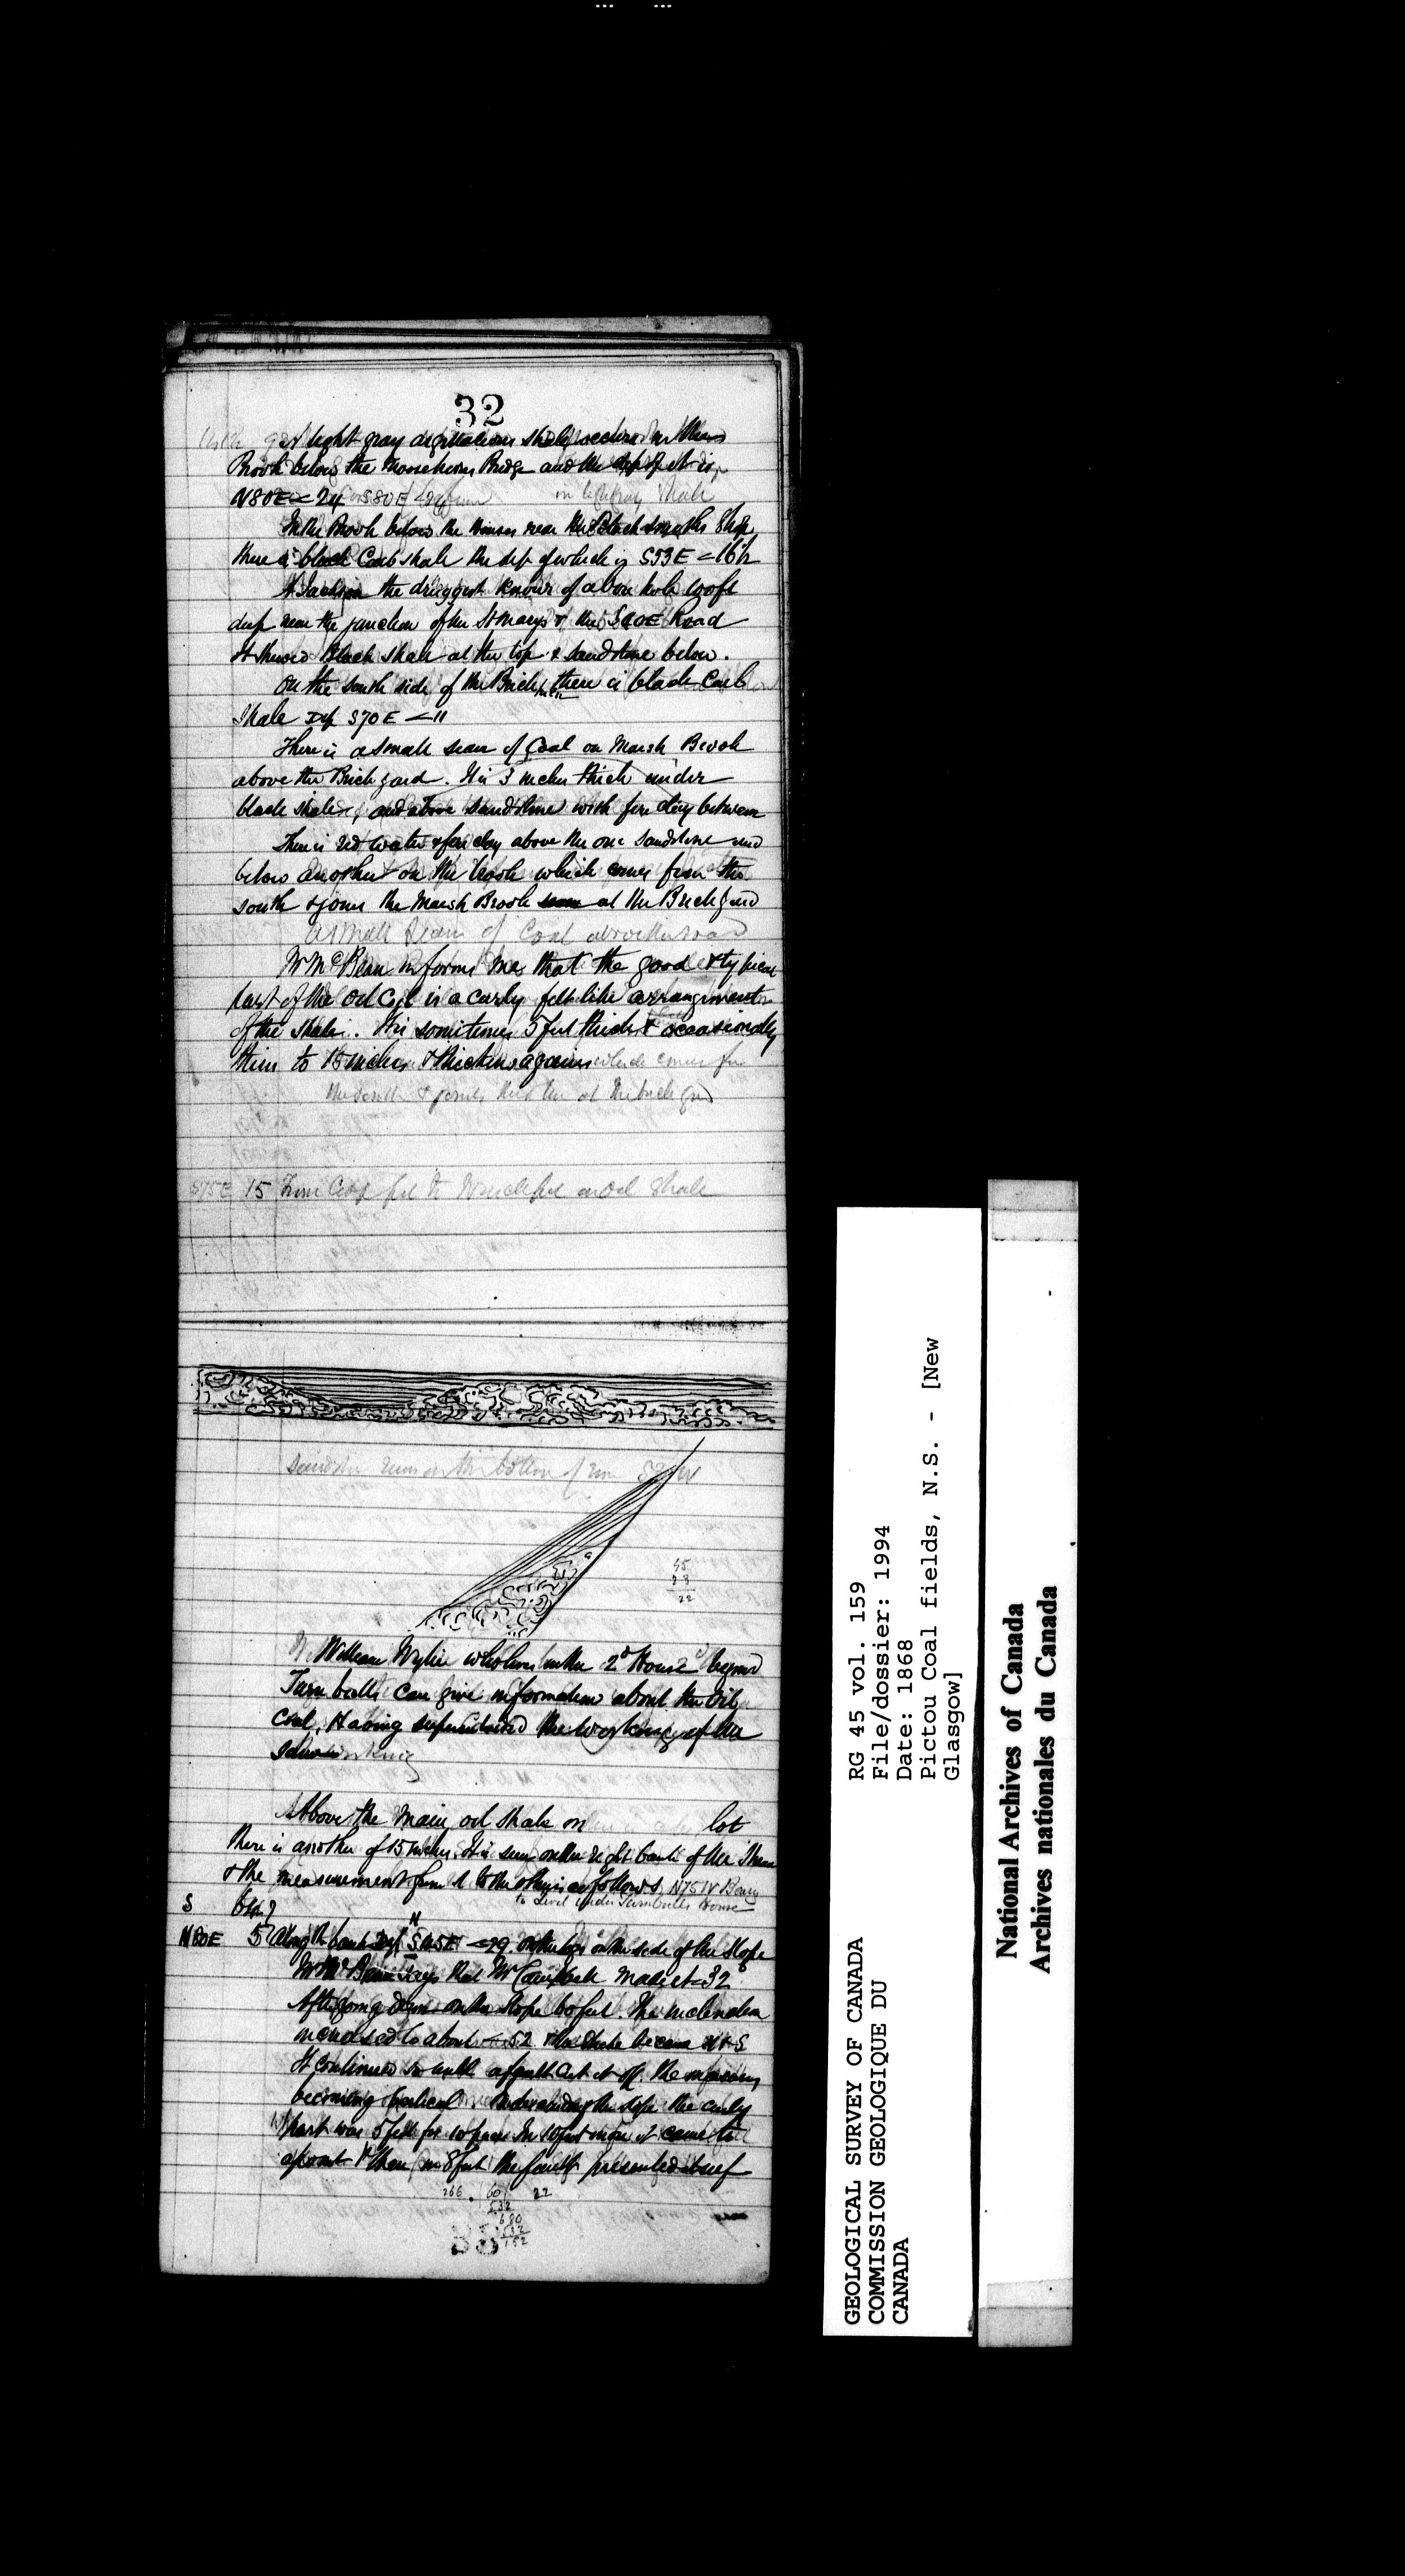 32
A light gray argillaceous shale occurs in Marsh
Brook below the Moosehorns Bridge and the dip of it is
N80E < 24 S80E
In the Brook below the houses near the Blacksmiths Shop
there is black Carb shale the dip of which is S53E < 16½
the druggist knows of a bore hole 100 ft
deep near the junction of the St Marys & the S40E Road
It shewed Black shale at the top & sandstone below.
On the south side of the Brick there is black Carb
shale Dip S70E < 11
There is a small seam of Coal on Marsh Brook
above the Brick yard. It is 3 inches thick under
black shale, and above sandstone with fire clay between
There is red water & fire clay above the one sandstone and
below another on the brook which comes from the
south & joins the Marsh Brook at the Brickyard
A small seam of Coal above the road
Mr McBean informs me that the good & typical
part of the Oil Coal is a curly felt like arrangement
of the shale. It is sometimes 5 feet thick & occasionally
thins to 15 inches & thickens again
the south & joins at the brick yard
S75E 15 From Coal pit to oil shale
on the bottom of
45
23
22
William Wylie who lives in the 2d House beyond
Turnbulls can give information about the Oil
Coal, Having superintended the working of the
same
Above the main oil shale on lot
there is another of 15 inches. It is seen on the right bank of the
& the measurement from it to the other is as follows N75W
to Level under Turnbulls House
S 6
N80E 5 Along the bank Dip S45E < 29. on the side of the slope
N
Mr McBean says that Mr Campbell made it < 32
After going down on the slope 60 feet. The inclination
increased to about < 52 & the strike became N & S
It continued so until a fault cut it off. the measures
becoming vertical the slope the curly
part was 5 feet for 10 feet more it came to
a point & then in 8 feet the fault presented itself
266 . 60 22
532
680
532
152
33
RG 45 vol. 159
File/dossier: 1994
Date: 1868
Pictou Coal fields, N.S. - [New
Glasgow]
GEOLOGICAL SURVEY OF CANADA
COMMISSION GEOLOGIQUE DU
CANADA
National Archives of Canada
Archives nationales du Canada